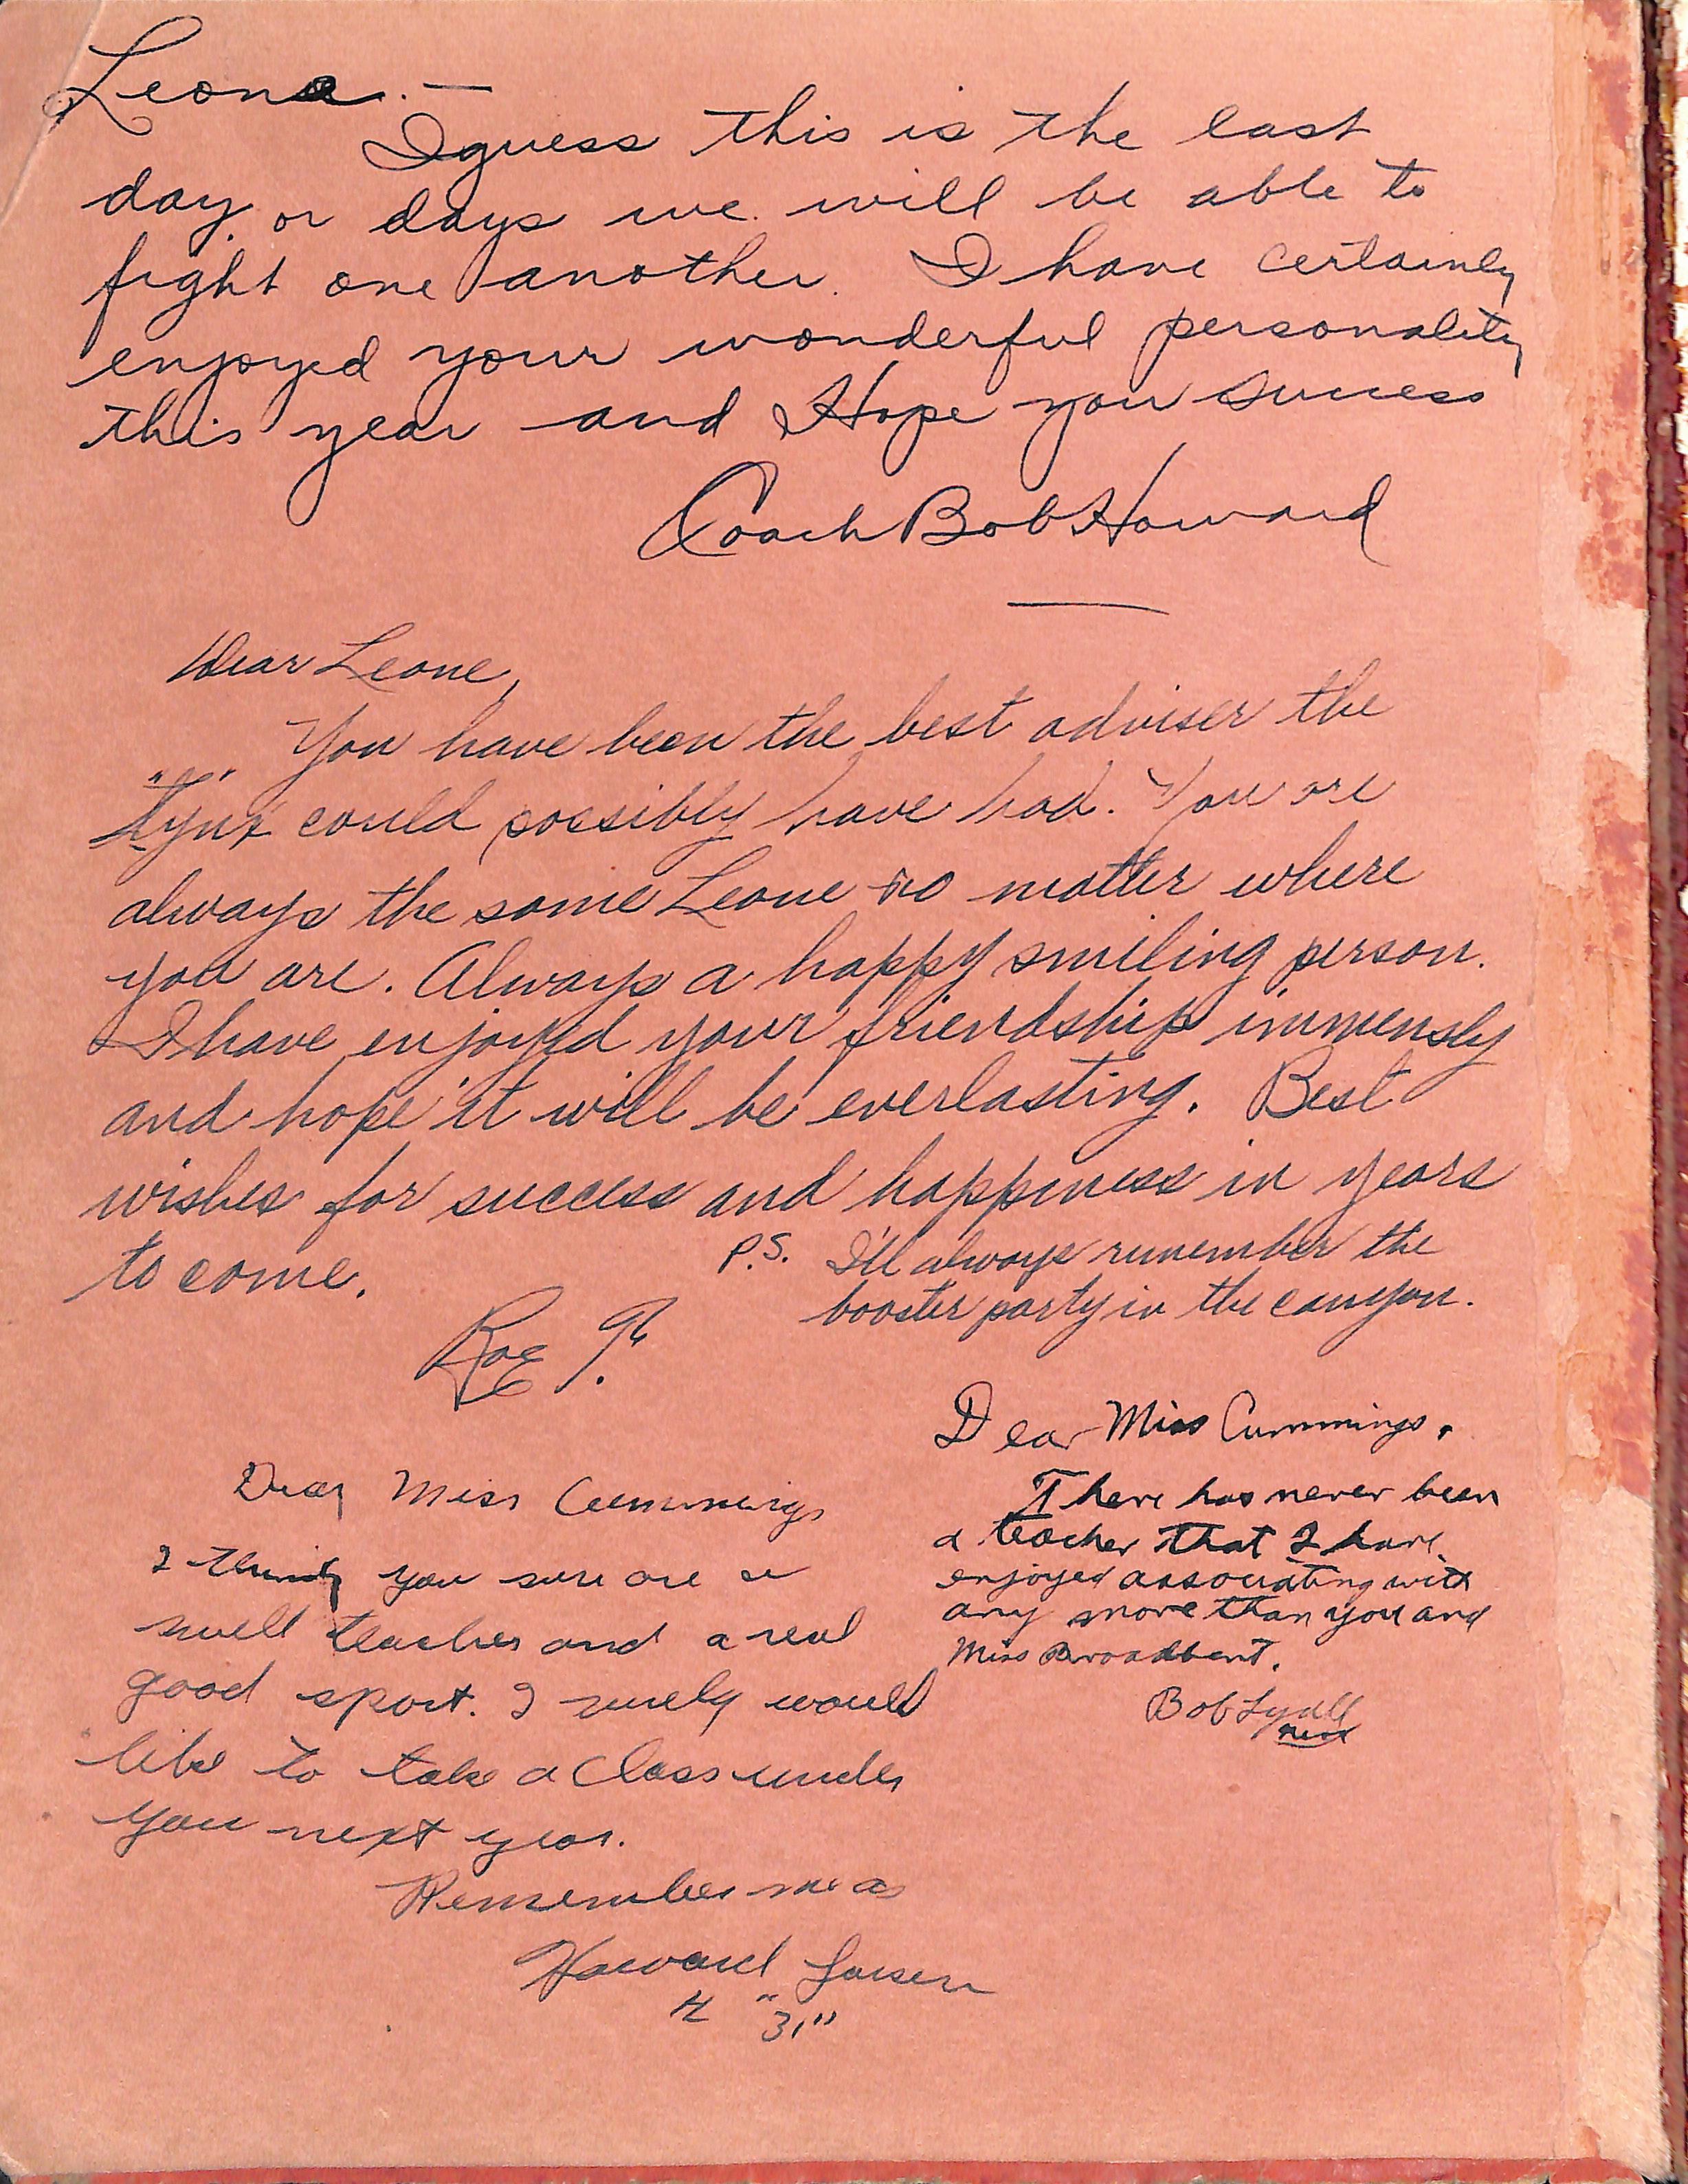 Leone. —
I guess this is the last
day or days we will be able to
fight one another. I have certainly
enjoyed your wonderful personality
this year and Hope you success
Coach Bob Howard
Dear Leone,
You have been the best adviser the
"Lynx" could possibly have had. You are
always the same Leone no matter where
you are. Always a happy smiling person.
I have enjoyed your friendship immensly
and hope it will be everlasting. Best
wishes for success and happiness in years
to come.
Rae
P.S. I'll always remember the
booster party in the canyon.
Dear Miss Cummings
I think you sure are a
swell teacher and a real
good sport. I surely would
like to take a class under
you next year.
Remember me as
Howard Larsen
"31"
Dear Miss Cummings,
There has never been
a teacher that I have
enjoyed associating with
any more than you and
Miss Broadbent.
Bob Lyall